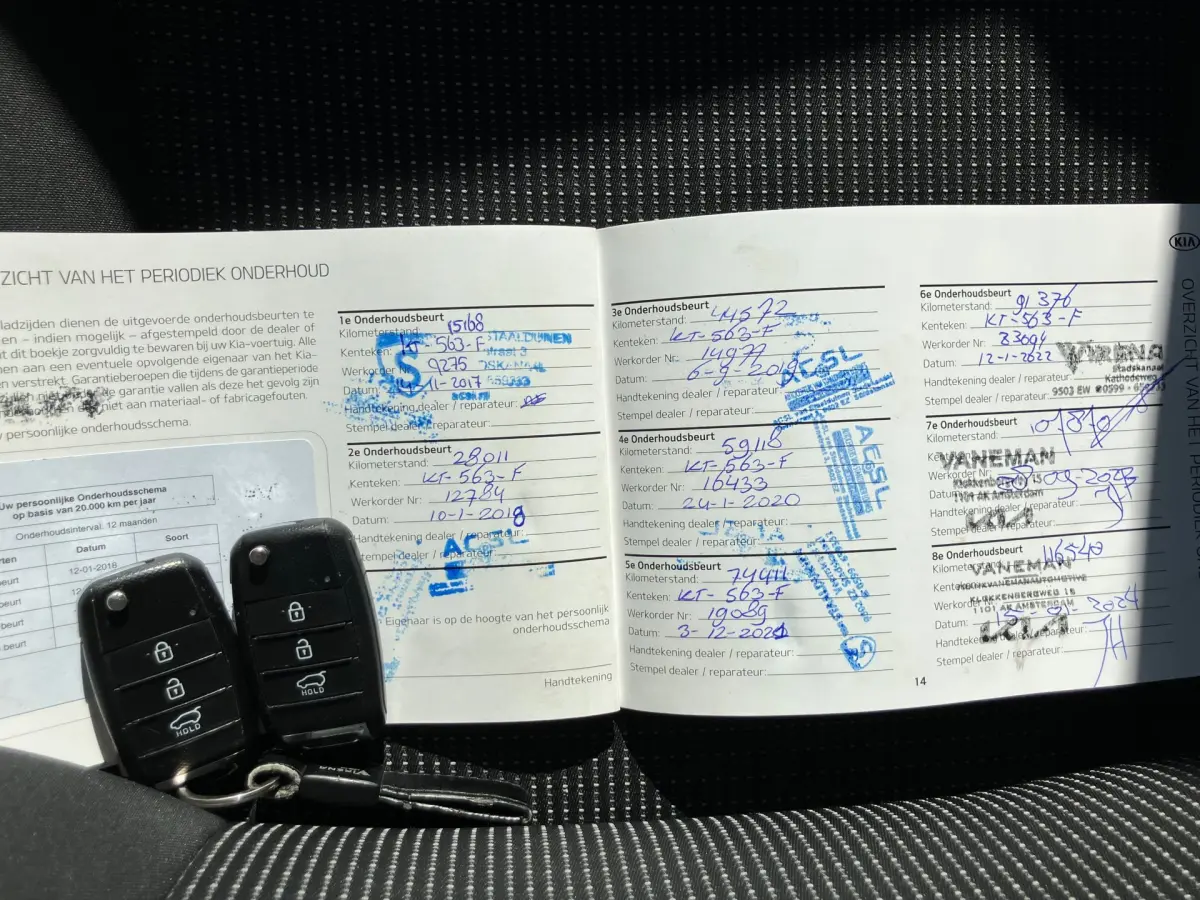 ZICHT VAN HET PERIODIEK ONDERHOUD
ladzijden dienen de uitgevoerde onderhoudsbeurten te
en – indien mogelijk – afgestempeld door de dealer of
t dit boekje zorgvuldig te bewaren bij uw Kia-voertuig. Alle
nen aan een eventuele opvolgende eigenaar van het Kia-
n verstrekt. Garantieberoepen die tijdens de garantieperiode
de garantie vallen als deze het gevolg zijn
niet aan materiaal- of fabricagefouten.
w persoonlijke onderhoudsschema.
Uw persoonlijke Onderhoudsschema
op basis van 20.000 km per jaar
Onderhoudsinterval: 12 maanden
rten Datum Soort
beurt 12-01-2016
beurt 12
beurt
beurt
beurt
HOLD
HOLD
1e Onderhoudsbeurt
Kilometerstand: 15168
Kenteken: KT 563-F
Werkorder Nr: 9275
Datum: 11-2017
Handtekening dealer / reparateur:
Stempel dealer / reparateur:
STAALDUINEN
2e Onderhoudsbeurt
Kilometerstand: 28011
Kenteken: KT-563-F
Werkorder Nr: 12784
Datum: 10-1-2019
Handtekening dealer / reparateur:
Stempel dealer / reparateur:
Eigenaar is op de hoogte van het persoonlijk
onderhoudsschema
Handtekening
3e Onderhoudsbeurt
Kilometerstand: 44572
Kenteken: KT-563-F
Werkorder Nr: 14977
Datum: 6-9-2019
Handtekening dealer / reparateur:
Stempel dealer / reparateur:
ACSL
4e Onderhoudsbeurt
Kilometerstand: 59118
Kenteken: KT-563-F
Werkorder Nr: 16433
Datum: 24-1-2020
Handtekening dealer / reparateur:
Stempel dealer / reparateur:
ACSL
5e Onderhoudsbeurt
Kilometerstand: 74411
Kenteken: KT-563-F
Werkorder Nr: 19089
Datum: 3-12-2021
Handtekening dealer / reparateur:
Stempel dealer / reparateur:
6e Onderhoudsbeurt
Kilometerstand: 91376
Kenteken: KT-563-F
Werkorder Nr: 83094
Datum: 12-1-2022
Handtekening dealer / reparateur:
Stempel dealer / reparateur:
WIRENA
Stadskanaal
Kathodeweg
9503 EW
7e Onderhoudsbeurt
Kilometerstand:
Kenteken:
Werkorder Nr:
Datum: 09-2023
Handtekening
Stempel dealer / reparateur:
VANEMAN
1101 AK Amsterdam
KIA
8e Onderhoudsbeurt
116540
Kenteken:
Werkorder Nr:
Datum: 2024
Handtekening / reparateur:
Stempel dealer / reparateur:
VANEMAN
KLOKKENBERGWEG 15
1101 AK AMSTERDAM
KIA
14
KIA
OVERZICHT VAN HET PERIODIEK